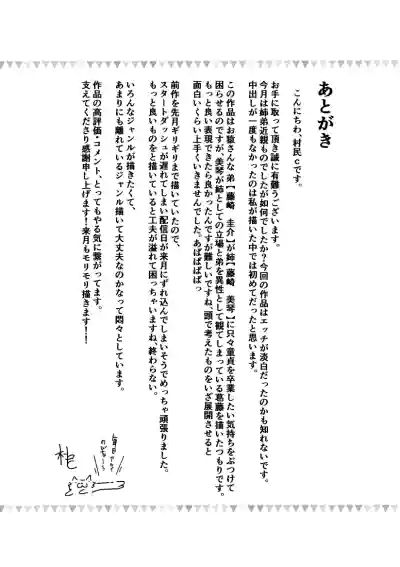 あとがき
こんにちわ、村民cです。
お手に取って頂き誠に有難うございます。
今月は姉弟近親ものでしたが如何でしたか？今回の作品はエッチが淡白だったのかも知れないです。
中出しが一度もなかったのは私が描いた中では初めてだったと思います。
この作品はお猿さんな弟【藤崎 圭介】が姉【藤崎 美琴】に只々童貞を卒業したい気持ちをぶつけて
困らせるのですが、美琴が姉としての立場と弟を異性として観てしまっている葛藤を描いたつもりです。
もっと良い表現できたら良かったんですが難しいですね、頭で考えたものをいざ展開させると
面白いくらい上手くいきませんでした。あばばばばっ
前作を先月ギリギリまで描いていたので、
スタートダッシュが遅れてしまい配信日が来月にずれ込んでしまいそうでめっちゃ頑張りました。
もっと良いものをと描いていると工夫が溢れて困っちゃいますね、終わらない。
いろんなジャンルが描きたくて、
あまりにも離れているジャンル描いて大丈夫なのかなって悶々としています。
作品の高評価・コメント、とってもやる気に繋がってます。
支えてくださり感謝申し上げます！来月もモリモリ描きます！！